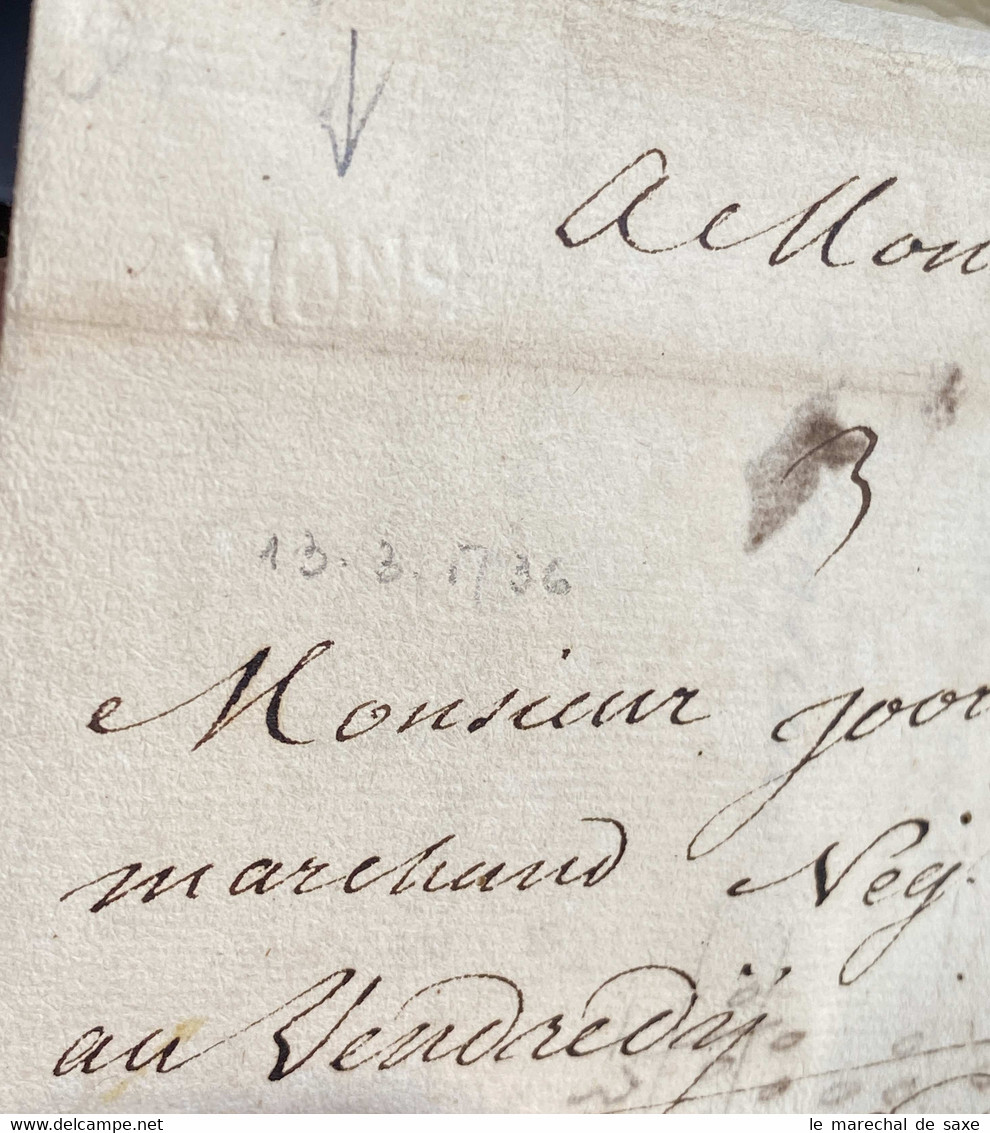 A Mon
MONS
3
13.3.1736
Monsieur Joor
marchand Neg.
au Vendredij
le marechal de saxe